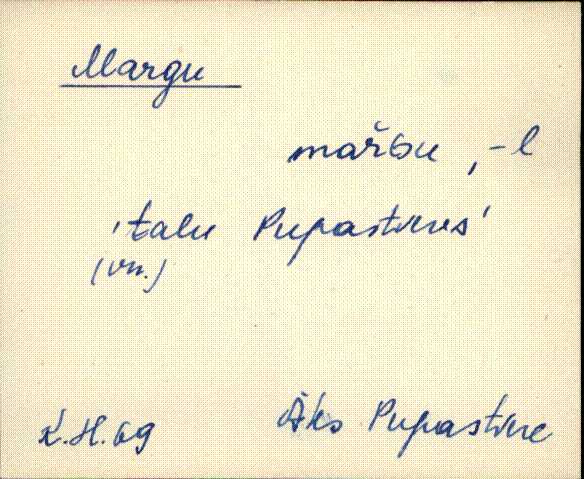 Margu
marGu, -l
'talu Pupastveres'
(vn.)
K.H. 69
Äks Pupastvere